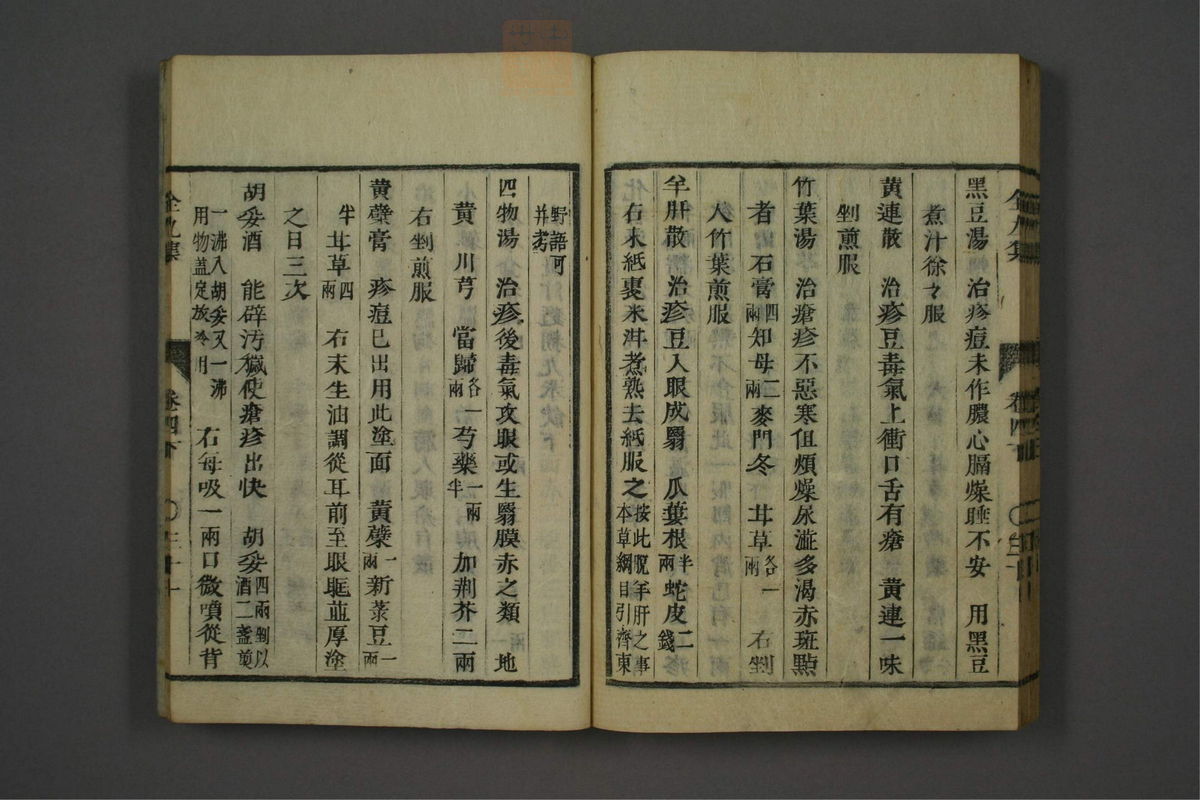 黑豆湯 治疹痘未作膿心膈燥睡不安 用黑豆
煮汁徐々服
黃連散 治疹豆毒氣上衝口舌有瘡 黃連一味
剉煎服
竹葉湯 治瘡疹不惡寒但煩燥尿澁多渴赤斑㸃
者 石膏四兩 知母二兩 麥門冬 甘草各一兩 右剉
入竹葉煎服
羊肝散 治疹豆入眼成翳 瓜蔞根半兩 蛇皮二錢
右末紙褁米泔煮熟去紙服之 按此說羊肝之事本草綱目引齊東
野語可并考
四物湯 治疹後毒氣攻眼或生翳膜赤之類 地
黃 川芎 當歸各一兩 芍藥一兩半 加荆芥二兩
右剉煎服
黃蘗膏 疹痘已出用此塗面 黃蘗一兩 新菉豆一兩
半 甘草四兩 右末生油調從耳前至眼眶並厚塗
之日三次
胡荽酒 能辟汚穢使瘡疹出快 胡荽四兩剉以酒二盞煎
一沸入胡荽又一沸用物盖定放冷用 右每吸一兩口微噴從背
全九集
卷四下